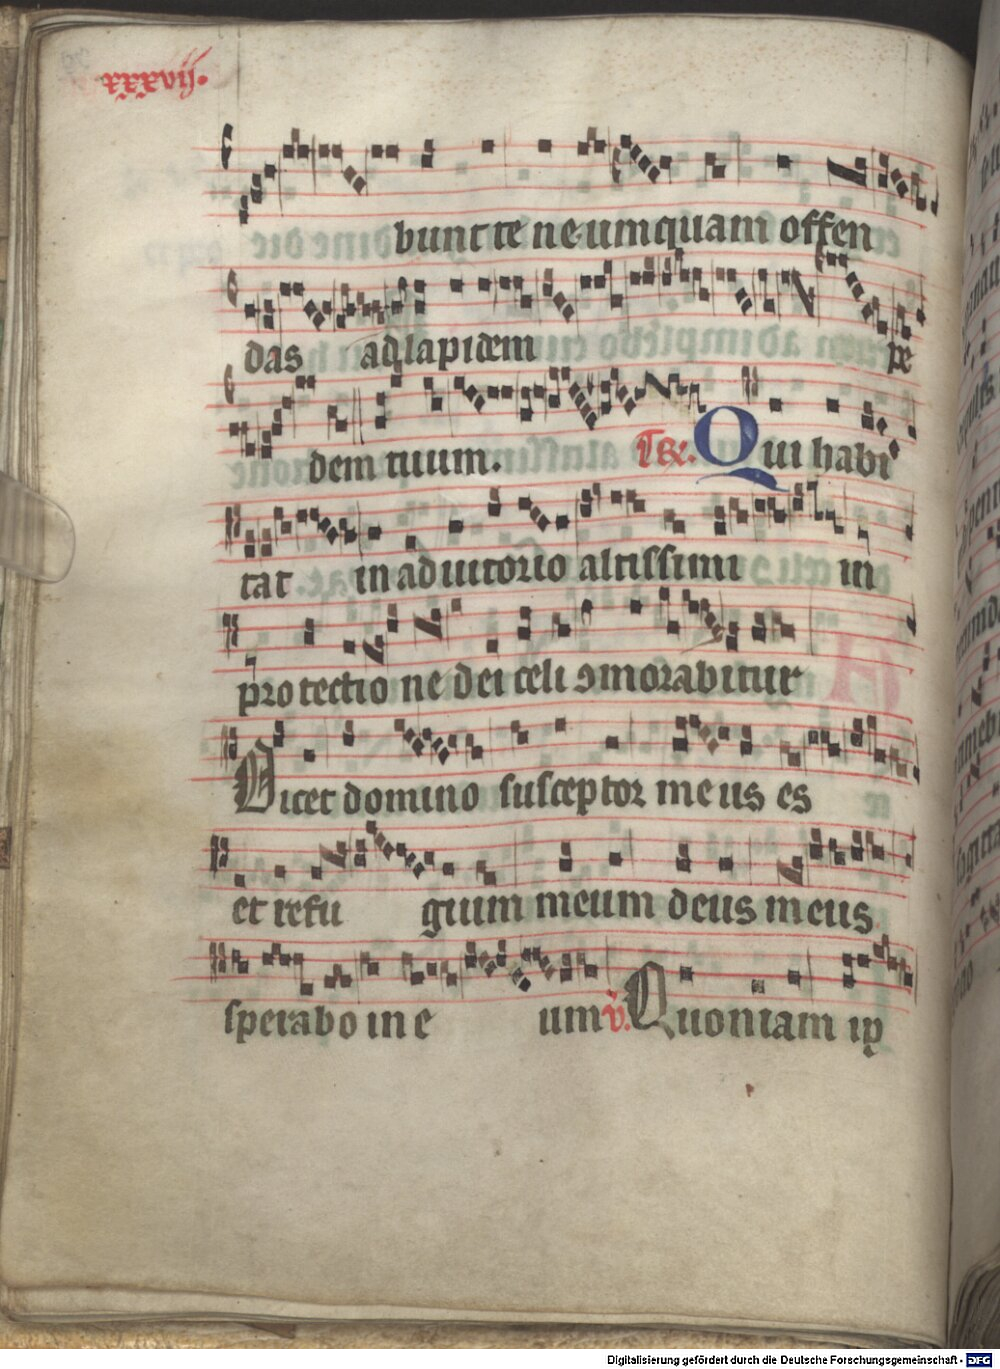 xxxvij.
bunt te ne umquam offen
das ad lapidem pe
dem tuum. Tr. Qui habi
tat in adiutorio altissimi in
protectione dei celi ꝯmorabitur
Dicet domino susceptor meus es
et refu gium meum deus meus
sperabo in e um v. Quoniam ip
Digitalisierung gefördert durch die Deutsche Forschungsgemeinschaft - DFG